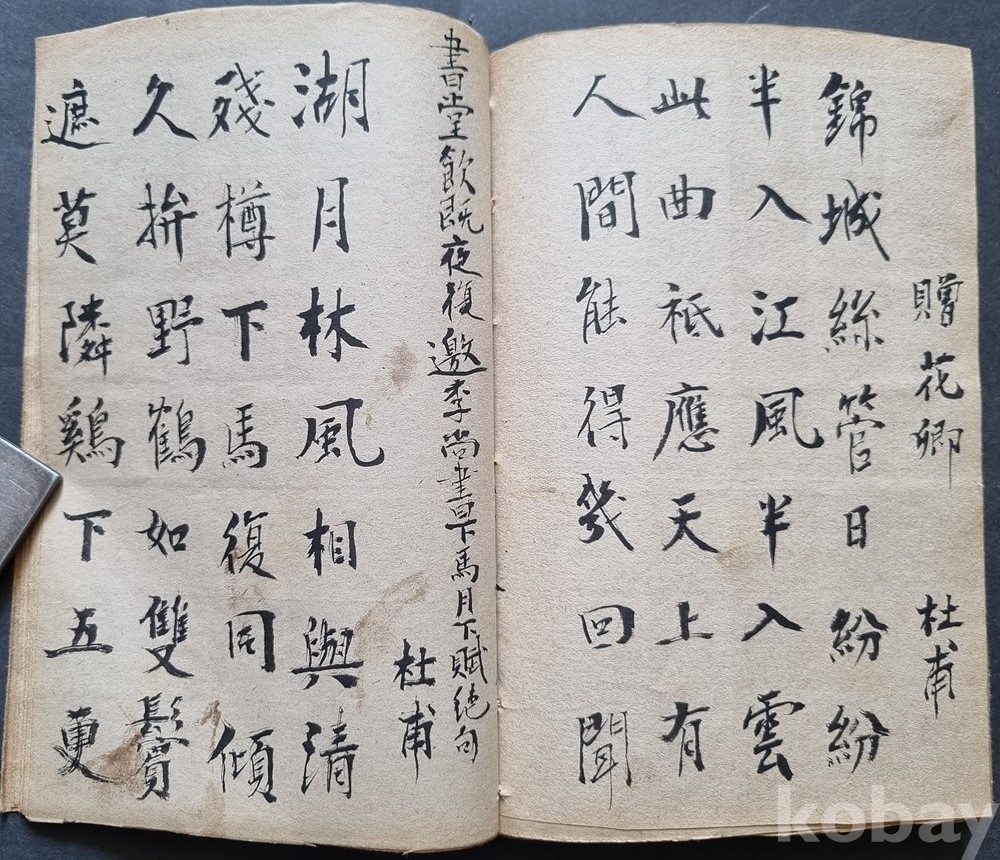 贈花卿 杜甫
錦城絲管日紛紛
半入江風半入雲
此曲祇應天上有
人間能得幾回聞
書堂飲既夜復邀李尚書下馬月下賦絶句
杜甫
湖月林風相與清
殘樽下馬復同傾
久拚野鶴如雙鬢
遮莫隣鷄下五更
kobay